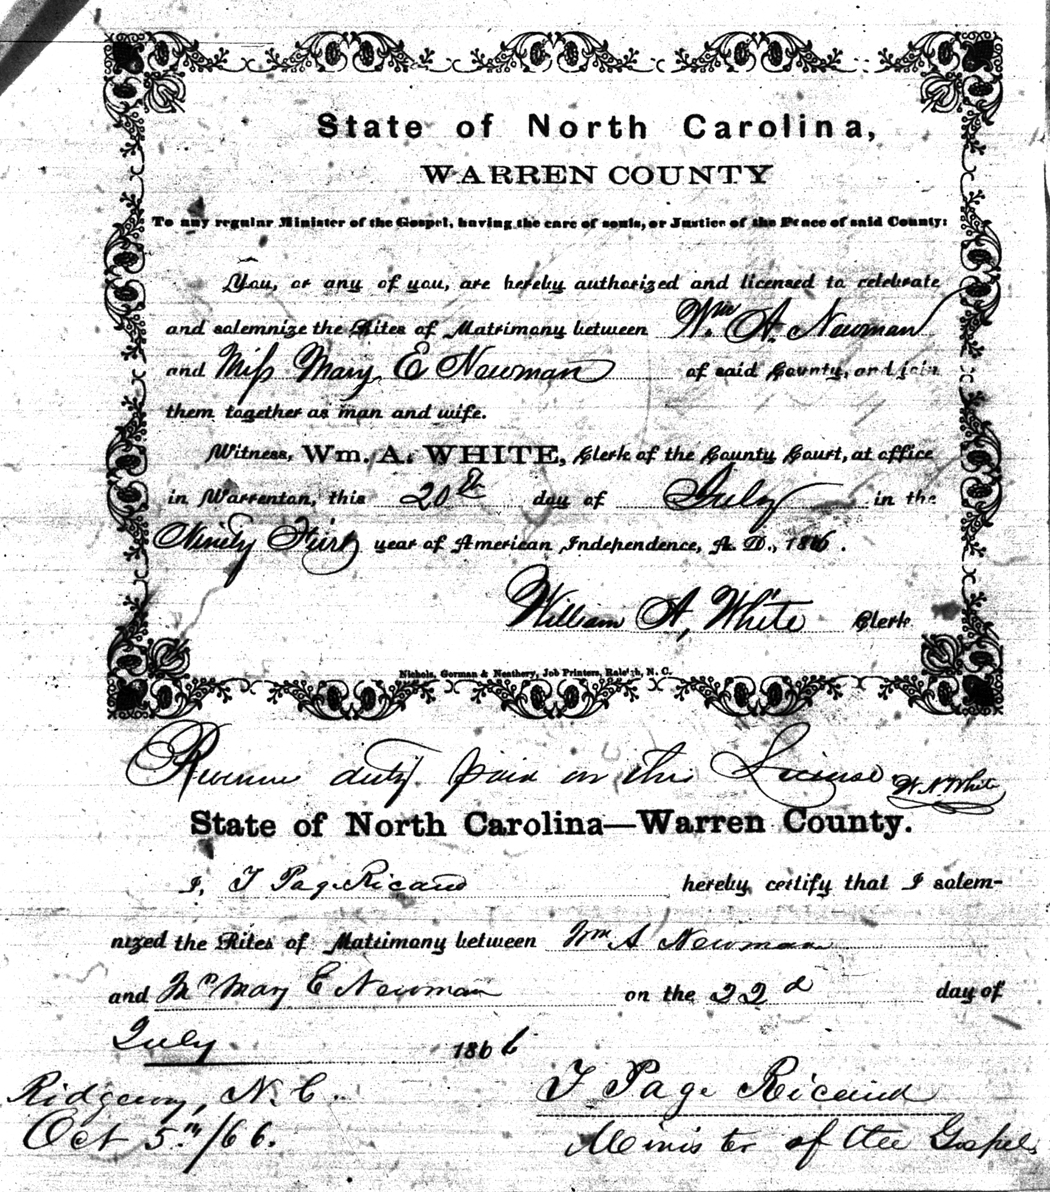 State of North Carolina,
WARREN COUNTY
To any regular Minister of the Gospel, having the care of souls, or Justice of the Peace of said County:
You, or any of you, are hereby authorized and licensed to celebrate
and solemnize the Rites of Matrimony between Wm A. Newman
and Miss Mary E Newman of said County, and join
them together as man and wife.
Witness, Wm. A. WHITE, Clerk of the County Court, at office
in Warrenton, this 20th day of July in the
Ninety First year of American Independence, A. D., 1866.
William A, White Clerk
Nichols, Gorman & Neathery, Job Printers, Raleigh, N. C.
Revenue duty paid on this License W. A. White
State of North Carolina—Warren County.
I, T Page Ricaud hereby certify that I solem-
nized the Rites of Matrimony between Wm A Newman
and Mary E Newman on the 22d day of
July 1866
Ridgeway, N. C.
Oct 5th/66.
T Page Ricaud
Minister of the Gospel